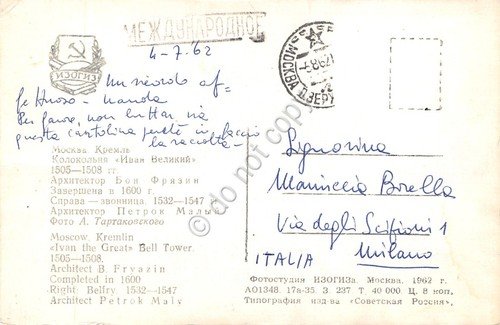 МЕЖДУНАРОДНОЕ
4-7.62
ИЗОГИЗ
МОСКВА
Un ricordo af-
fettuoso - Wanda
Per favore, non buttar via
questa cartolina perché io faccio
la raccolta -
Москва Кремль
Колокольня «Иван Великий»
1505—1508 гг.
Архитектор Бон Фрязин
Завершена в 1600 г.
Справа — звонница. 1532—1547
Архитектор Петрок Малый
Фото А. Тартаковского
Moscow. Kremlin
«Ivan the Great» Bell Tower.
1505—1508.
Architect B. Fryazin
Completed in 1600
Right: Belfry. 1532—1547
Architect Petrok Maly
Signorina
Mariuccia Borella
Via degli Scipioni 1
Milano
ITALIA
Фотостудия ИЗОГИЗа Москва. 1962 г.
А01348. 17а-35. З. 237 Т. 40 000 Ц. 8 коп.
Типография изд-ва «Советская Россия»,
do not copy